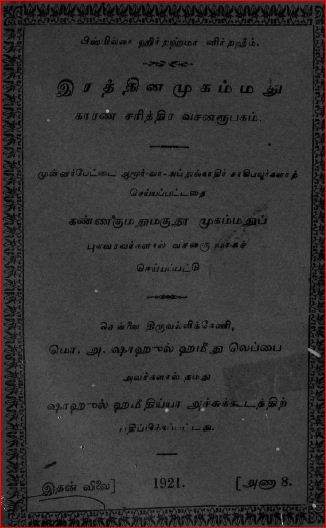 பிஸ்மில்லா ஹிர்றஹ்மா னிர்றஹீம்.
இரத்தினமுகம்மது
காரண சரித்திர வசனரூபகம்.
முன்னர்பேட்டை
செய்யப்பட்டதை
கண்ணகுமதுமகுதூ முகம்மதுப்
புலவரவர்களால்
செய்யப்பட்டு
சென்னை திருவல்லிக்கேணி,
மொ. அ. ஷாஹுல் ஹமீது லெப்பை
அவர்களால் தமது
ஷாஹுல் ஹமீதிய்யா அச்சுக்கூடத்திற்
பதிப்பிக்கப்பட்டது.
இதன் விலை] 1921. [அணா 8.